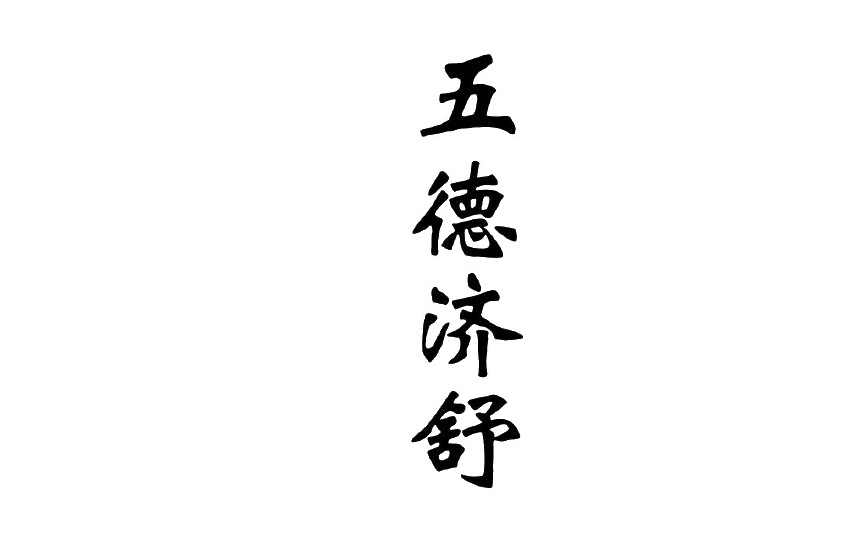 五德济舒